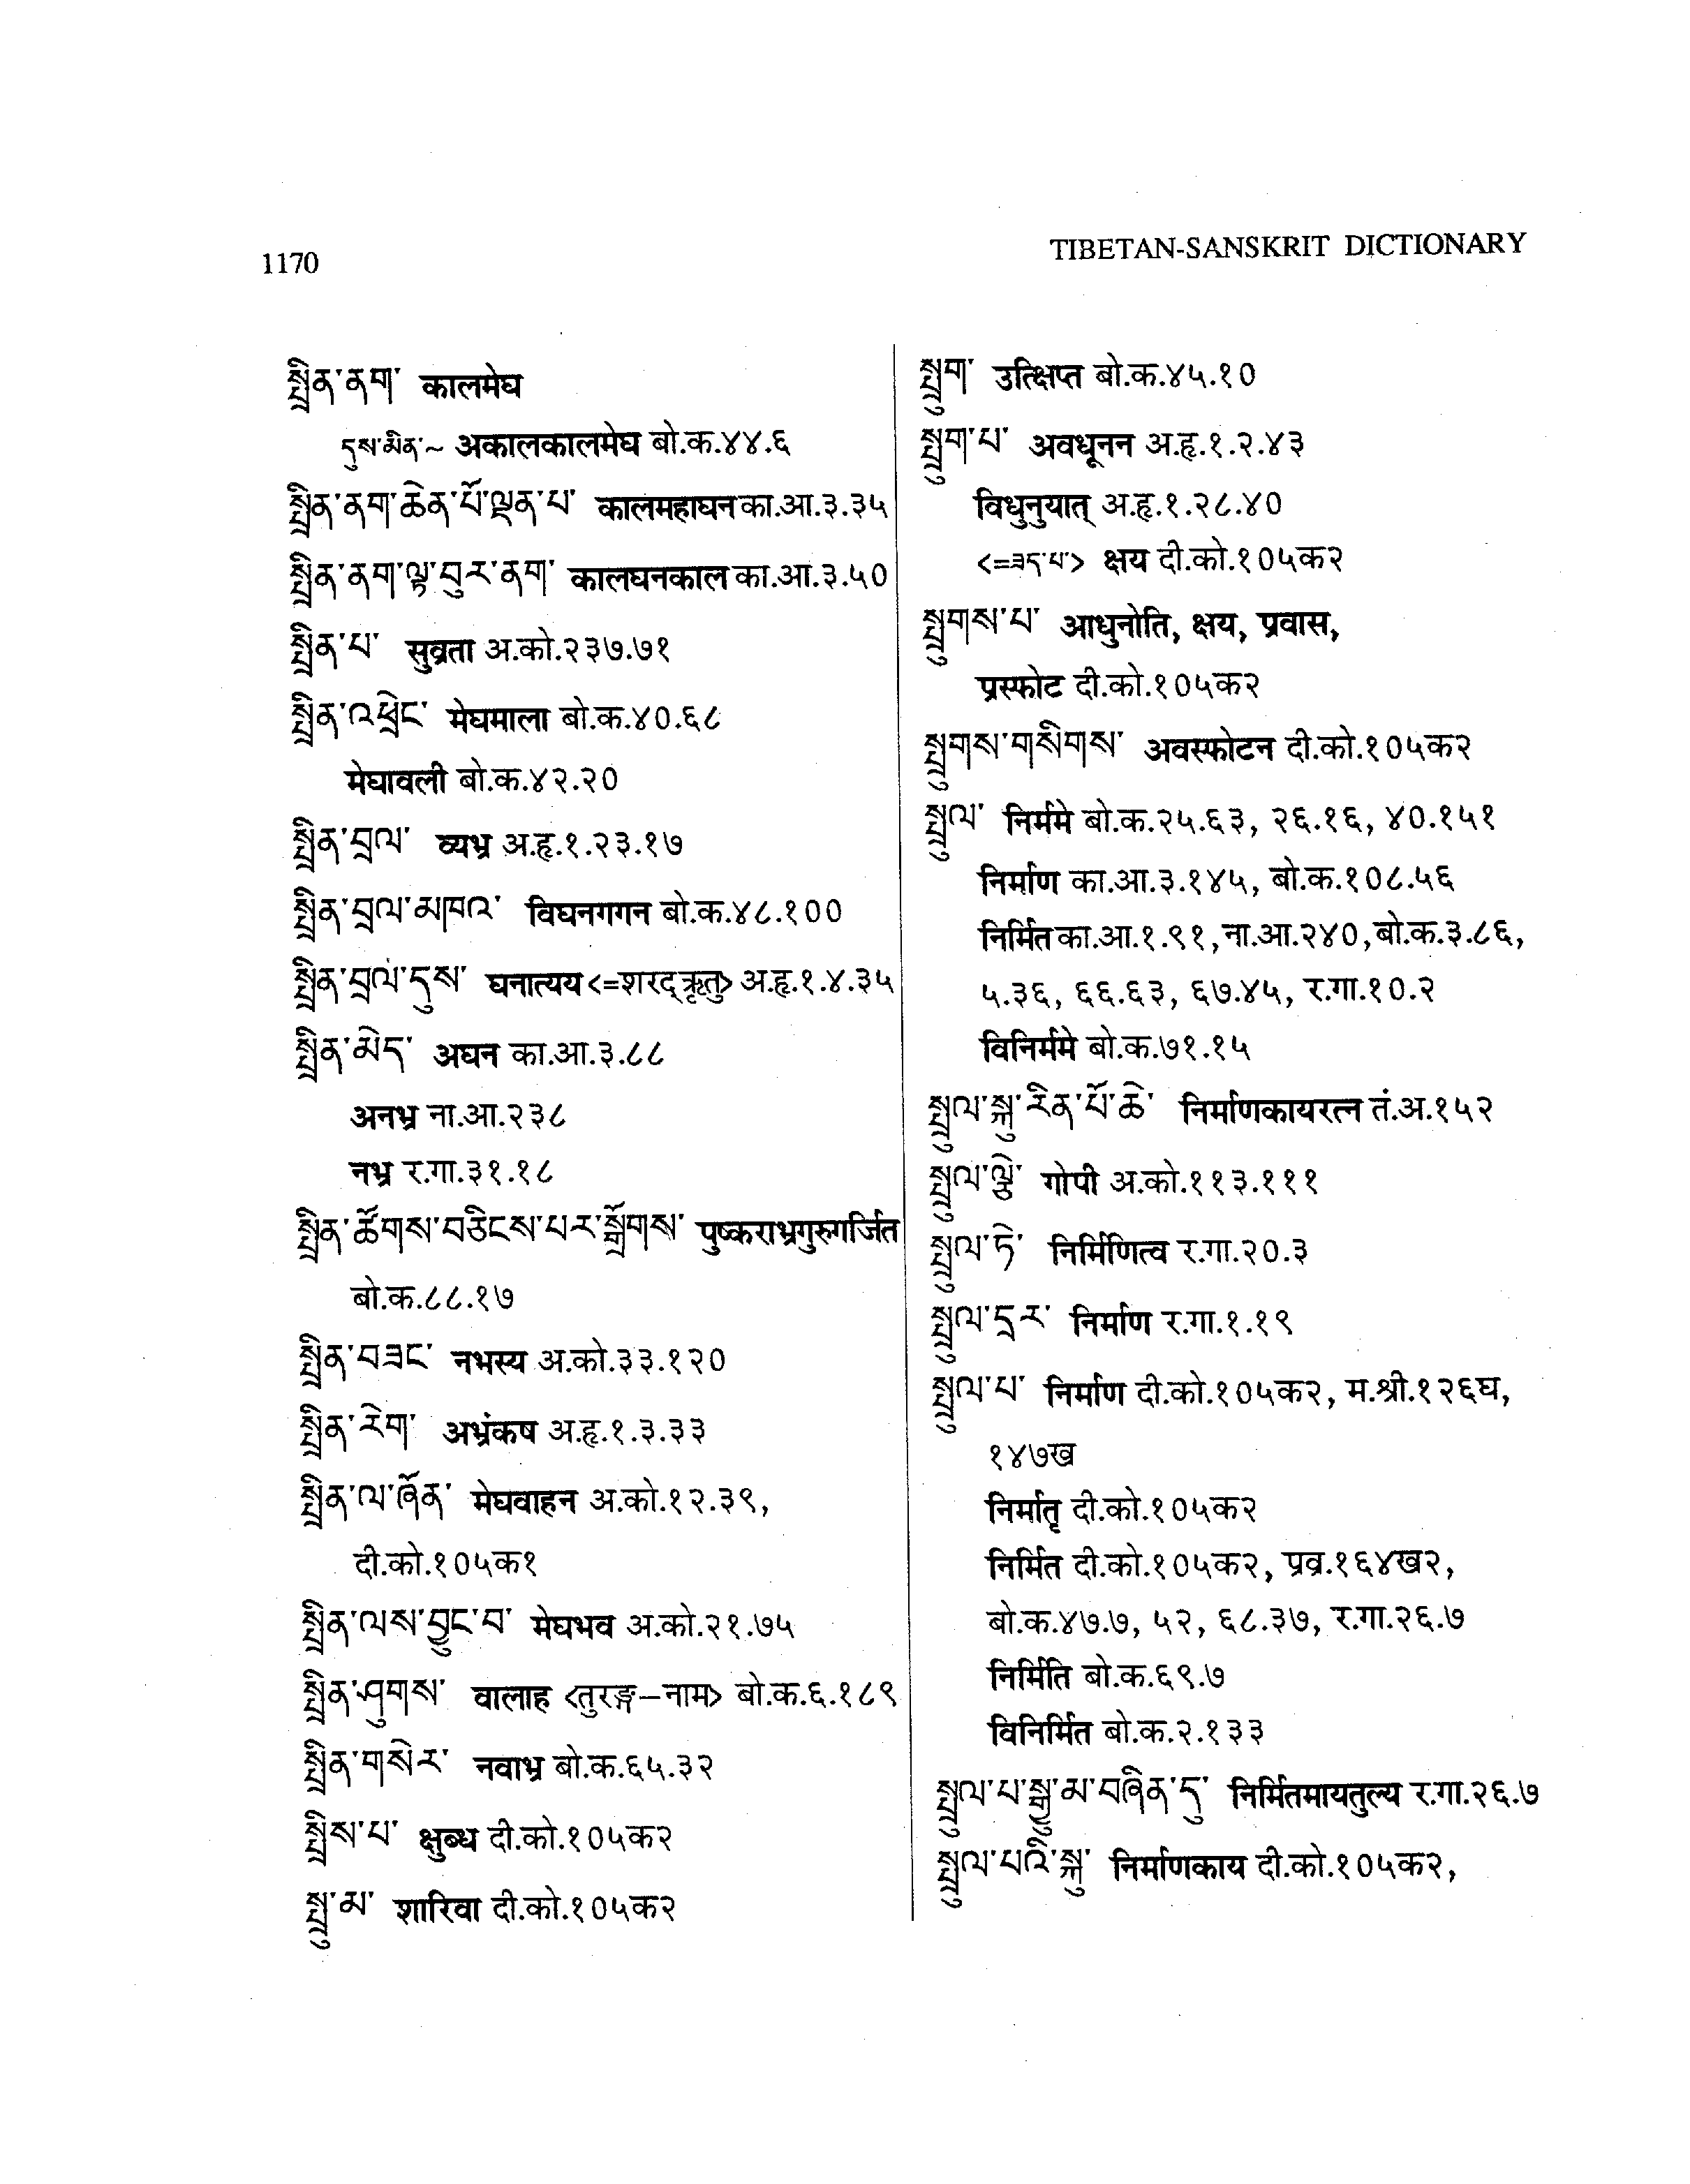 1170
TIBETAN-SANSKRIT DICTIONARY
སྤྲིན་ནག་ कालमेघ
དུས་མིན་~ अकालकालमेघ बो.क.४४.६
སྤྲིན་ནག་ཆེན་པོ་ལྡན་པ་ कालमहाघन का.आ.३.३५
སྤྲིན་ནག་ལྟ་བུར་ནག་ कालघनकाल का.आ.३.५०
སྤྲིན་པ་ सुव्रता अ.को.२३७.७१
སྤྲིན་འཕྲེང་ मेघमाला बो.क.४०.६८
मेघावली बो.क.४२.२०
སྤྲིན་བྲལ་ व्यभ्र अ.हृ.१.२३.१७
སྤྲིན་བྲལ་མཁའ་ विघनगगन बो.क.४८.१००
སྤྲིན་བྲལ་དུས་ घनात्यय <=शरद्ऋतु> अ.हृ.१.४.३५
སྤྲིན་མེད་ अघन का.आ.३.८८
अनभ्र ना.आ.२३८
नभ्र र.गा.३१.१८
སྤྲིན་ཚོགས་བཅིངས་པར་སྒྲོགས་ पुष्कराभ्रगुरुगर्जित
बो.क.८८.१७
སྤྲིན་བཟང་ नभस्य अ.को.३३.१२०
སྤྲིན་རེག་ अभ्रंकष अ.हृ.१.३.३३
སྤྲིན་ལ་ཞོན་ मेघवाहन अ.को.१२.३९,
दी.को.१०५क१
སྤྲིན་ལས་བྱུང་བ་ मेघभव अ.को.२१.७५
སྤྲིན་ཤུགས་ वालाह <तुरङ्ग–नाम> बो.क.६.१८९
སྤྲིན་གསེར་ नवाभ्र बो.क.६५.३२
སྤྲིས་པ་ क्षुब्ध दी.को.१०५क२
སྤྲུ་མ་ शारिवा दी.को.१०५क२
སྤྲུག་ उत्क्षिप्त बो.क.४५.१०
སྤྲུག་པ་ अवधूनन अ.हृ.१.२.४३
विधुनुयात् अ.हृ.१.२८.४०
<=ཟད་པ་> क्षय दी.को.१०५क२
སྤྲུགས་པ་ आधुनोति, क्षय, प्रवास,
प्रस्फोट दी.को.१०५क२
སྤྲུགས་གསིགས་ अवस्फोटन दी.को.१०५क२
སྤྲུལ་ निर्ममे बो.क.२५.६३, २६.१६, ४०.१५१
निर्माण का.आ.३.१४५, बो.क.१०८.५६
निर्मित का.आ.१.९१, ना.आ.२४०, बो.क.३.८६,
५.३६, ६६.६३, ६७.४५, र.गा.१०.२
विनिर्ममे बो.क.७१.१५
སྤྲུལ་སྐུ་རིན་པོ་ཆེ་ निर्माणकायरत्न तं.अ.१५२
སྤྲུལ་ལྕེ་ गोपी अ.को.११३.१११
སྤྲུལ་ཏེ་ निर्मिणित्व र.गा.२०.३
སྤྲུལ་དྲར་ निर्माण र.गा.१.१९
སྤྲུལ་པ་ निर्माण दी.को.१०५क२, म.श्री.१२६घ,
१४७ख
निर्मातृ दी.को.१०५क२
निर्मित दी.को.१०५क२, प्रव्र.१६४ख२,
बो.क.४७.७, ५२, ६८.३७, र.गा.२६.७
निर्मिति बो.क.६९.७
विनिर्मित बो.क.२.१३३
སྤྲུལ་པ་སྒྱུ་མ་བཞིན་དུ་ निर्मितमायतुल्य र.गा.२६.७
སྤྲུལ་པའི་སྐུ་ निर्माणकाय दी.को.१०५क२,